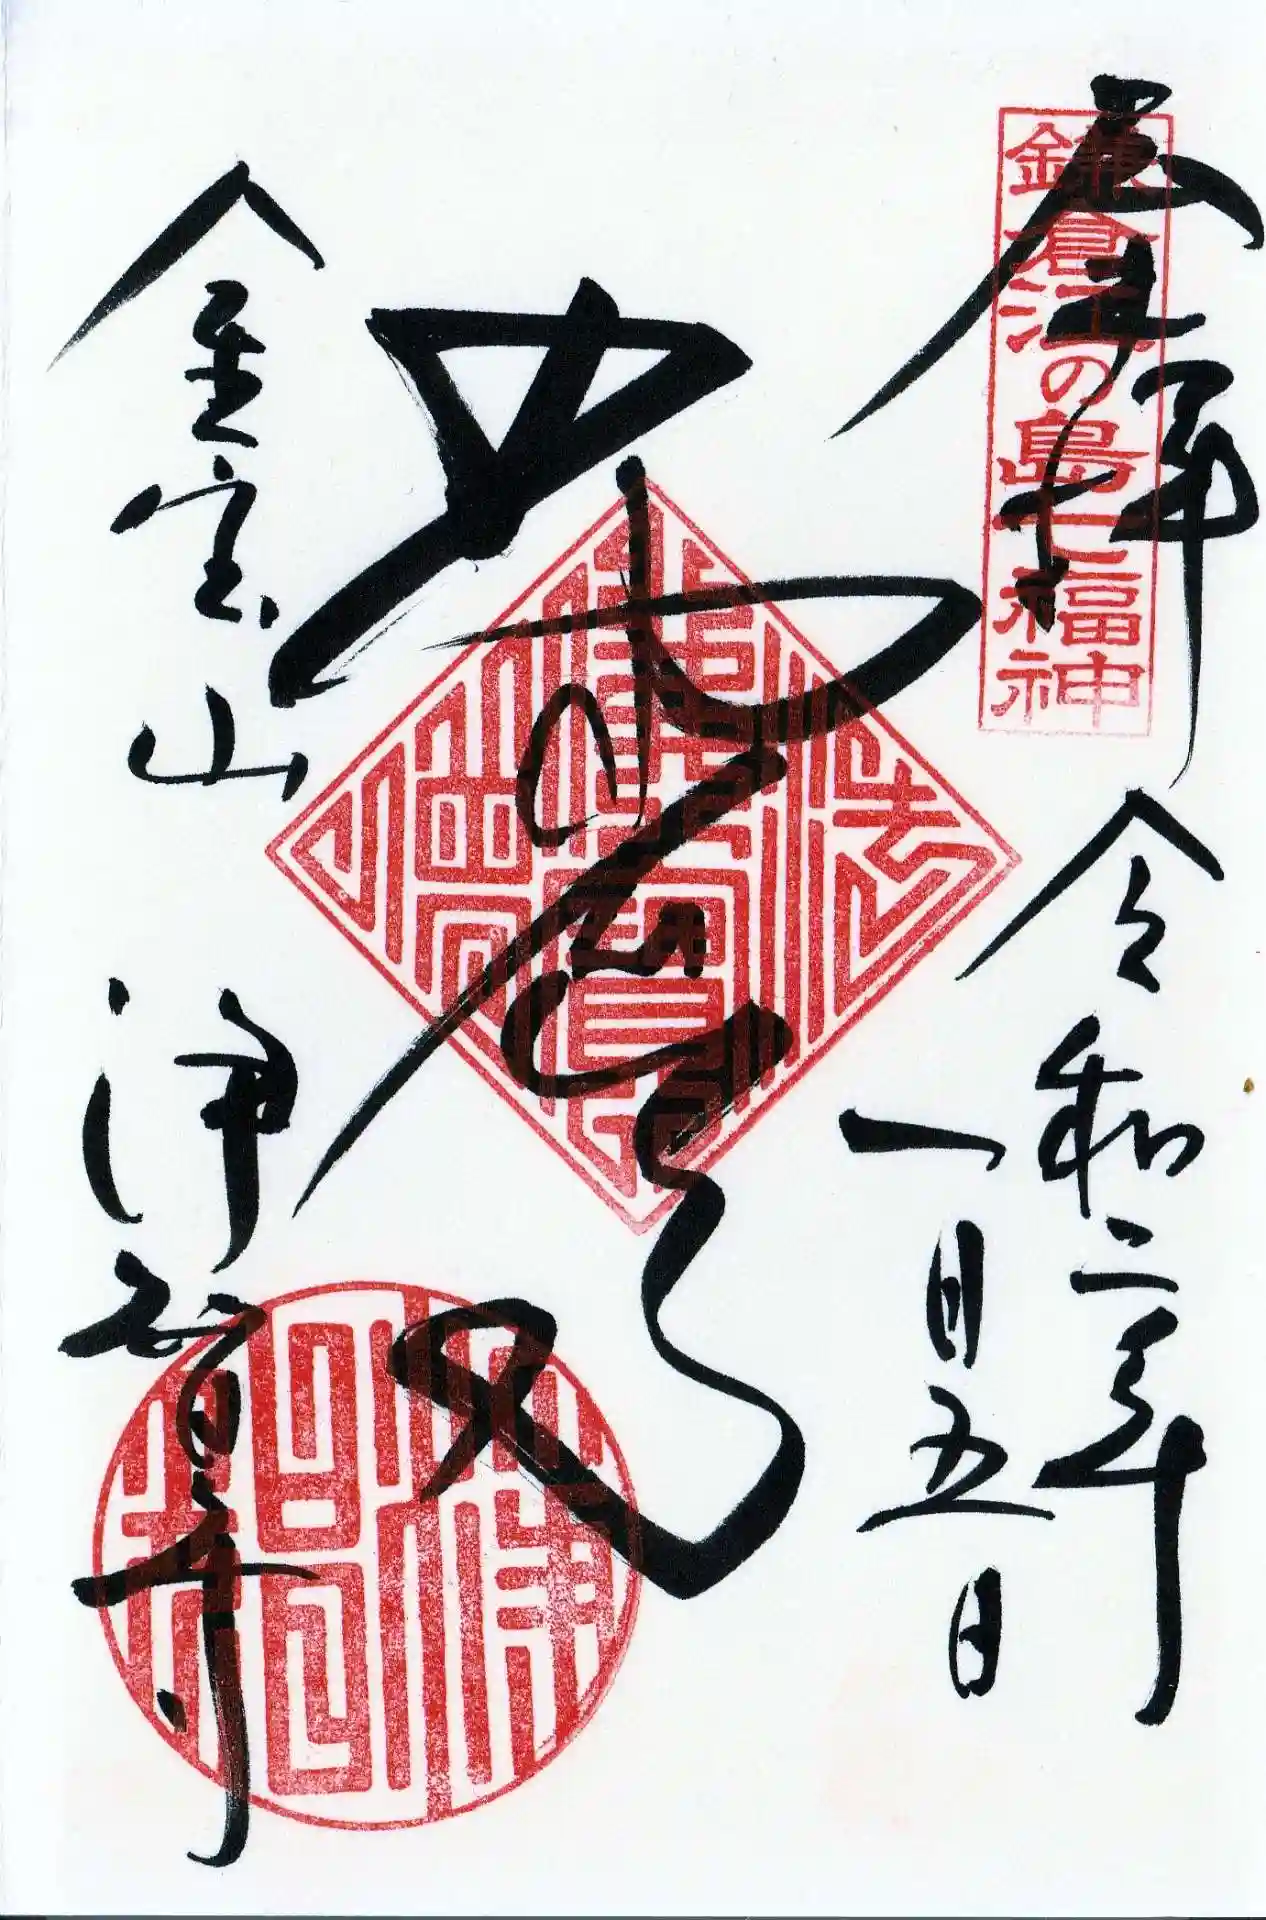 鎌倉江の島七福神
奉拝
令和二年
一月五日
佛法僧寶
金宝山 浄智寺